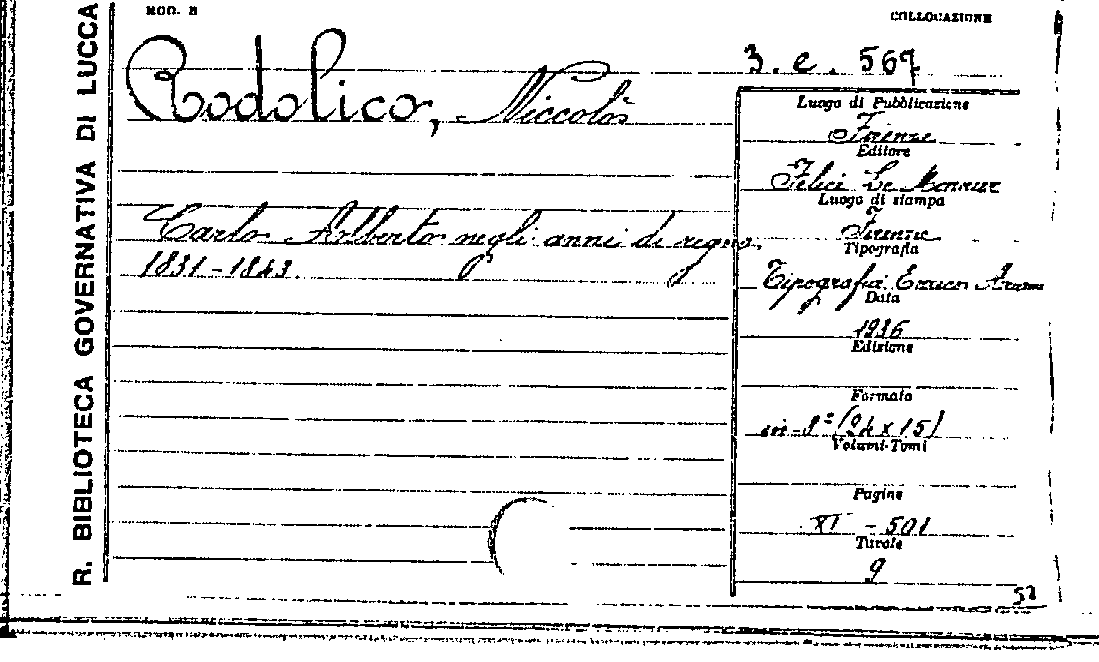 R. BIBLIOTECA GOVERNATIVA DI LUCCA
MOD. B
COLLOCAZIONE
3. e. 567
Rodolico, Niccolò
Carlo Alberto negli anni di regno.
1831-1843.
Luogo di Pubblicazione
Firenze
Editore
Felice Le Monnier
Luogo di stampa
Firenze
Tipografia
Tipografia Enrico Ariani
Data
1936
Edizione
Formato
in-8º (24 x 15)
Volumi-Tomi
Pagine
XI - 501
Tavole
9
52